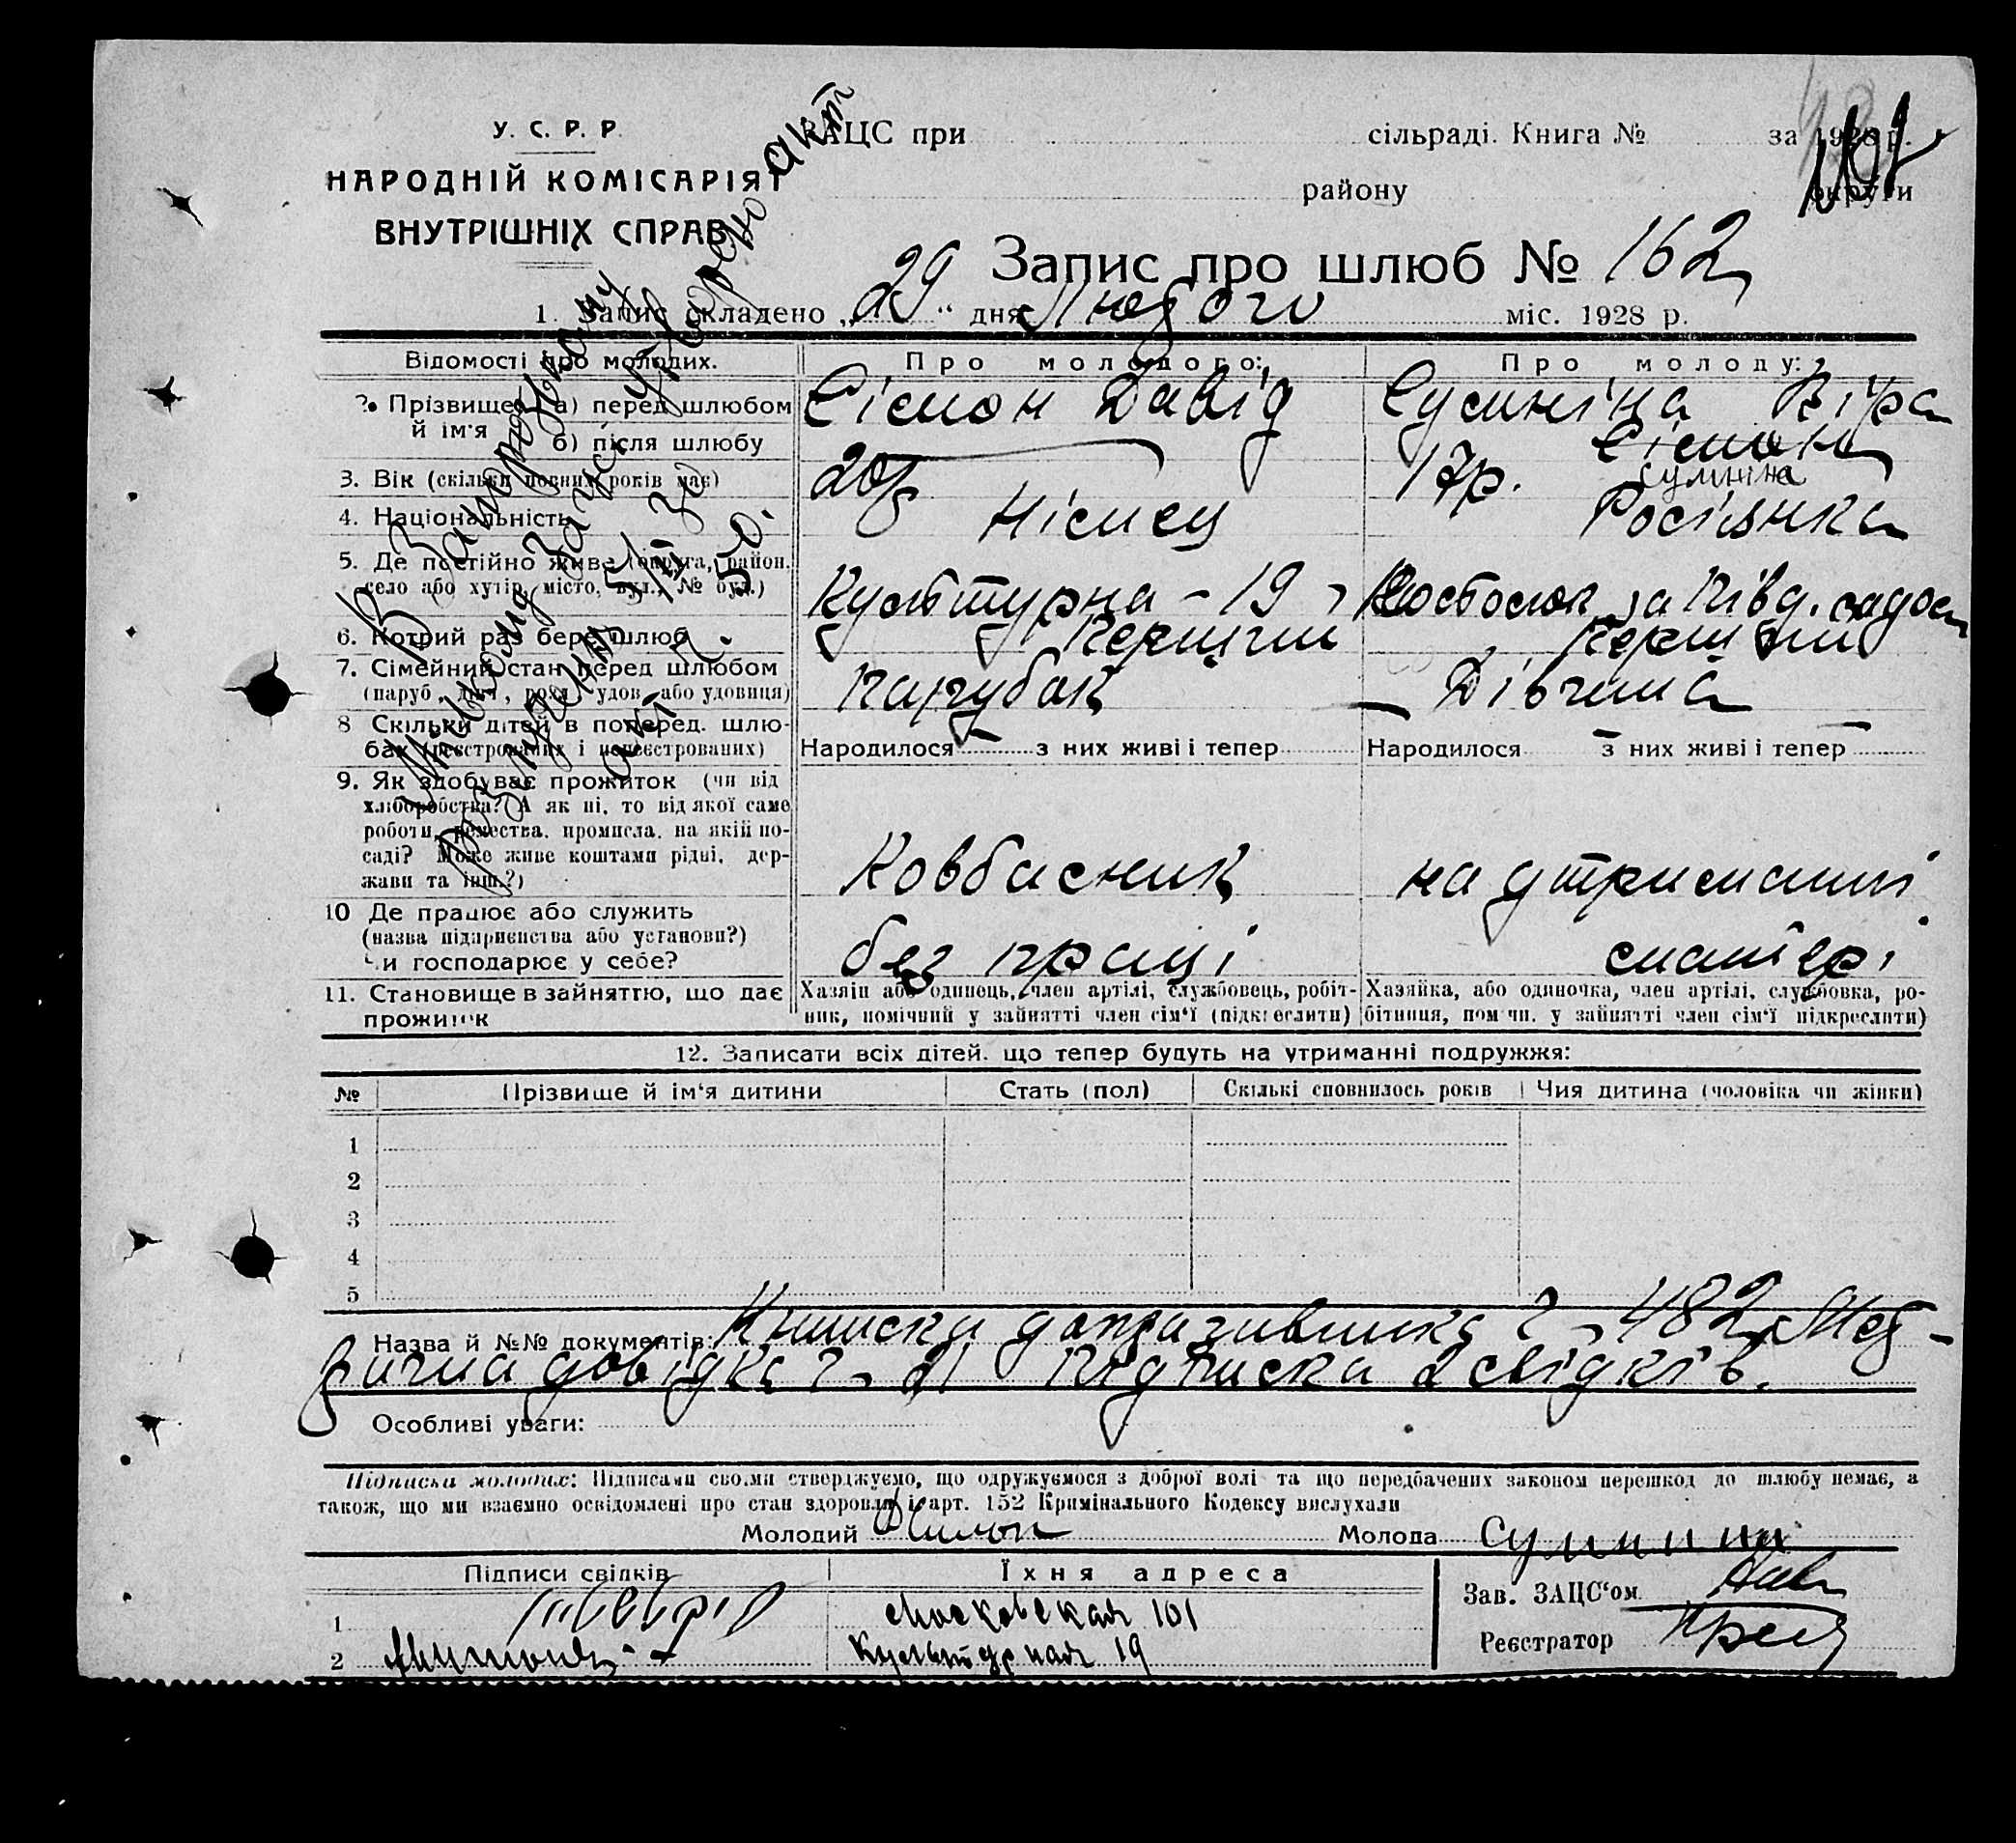 У. С. Р. Р.
НАРОДНІЙ КОМІСАРІЯТ
ВНУТРІШНІХ СПРАВ
ЗАЦС при сільраді. Книга № за 1928 р.
району округи
Запис про шлюб № 162
1. Запис складено „29“ дня Лютого міс. 1928 р.
Відомості про молодих. Про молодого: Про молоду:
2. Прізвище й ім'я а) перед шлюбом Сімон Давід Сумніна Віра
б) після шлюбу Сімон
Сумніна
3. Вік (скільки повних років має) 20 р 17 р.
4. Національність Німец Росіянка
5. Де постійно живе (округа, район, село або хутір, місто, вул., № буд.) Культурна - 19 за Півд.
6. Котрий раз бере шлюб Перший Перший
7. Сімейний стан перед шлюбом (паруб., дівч., розл., удов. або удовиця) Парубок Дівчина
8 Скільки дітей в поперед. шлюбах (реєстрованих і нереєстрованих) Народилося — з них живі і тепер — Народилося з них живі і тепер —
9. Як здобуває прожиток (чи від хліборобства? А як ні, то від якої саме роботи, ремества, промисла, на якій посаді? Може живе коштами рідні, держави та інш.?) Ковбасник на утриманні
10 Де працює або служить (назва підприємства або установи?) Чи господарює у себе? без праці матері
11. Становище в зайняттю, що дає прожиток
Хазяїн або одинець, член артілі, службовець, робітник, помічний у зайнятті член сім'ї (підкреслити)
Хазяйка, або одиночка, член артілі, службовка, робітниця, пом чн. у зайнятті член сім'ї підкреслити)
12. Записати всіх дітей, що тепер будуть на утриманні подружжя:
№ Прізвище й ім'я дитини Стать (пол) Скількі сповнилось років Чия дитина (чоловіка чи жінки)
1
2
3
4
5
Назва й №№ документів: Книжка ч. 482, Мед-
ична довідка ч. 21 підписка 2 свідків.
Особливі уваги:
Підписка молодих: Підписами своїми стверджуємо, що одружуємося з доброї волі та що передбачених законом перешкод до шлюбу немає, а
також, що ми взаємно освідомлені про стан здоровля і арт. 152 Кримінального Кодексу вислухали
Молодий Молода Сумнина
Підписи свідків Їхня адреса
1 Московская 101
2 Культурная 19
Зав. ЗАЦС'ом
Реєстратор